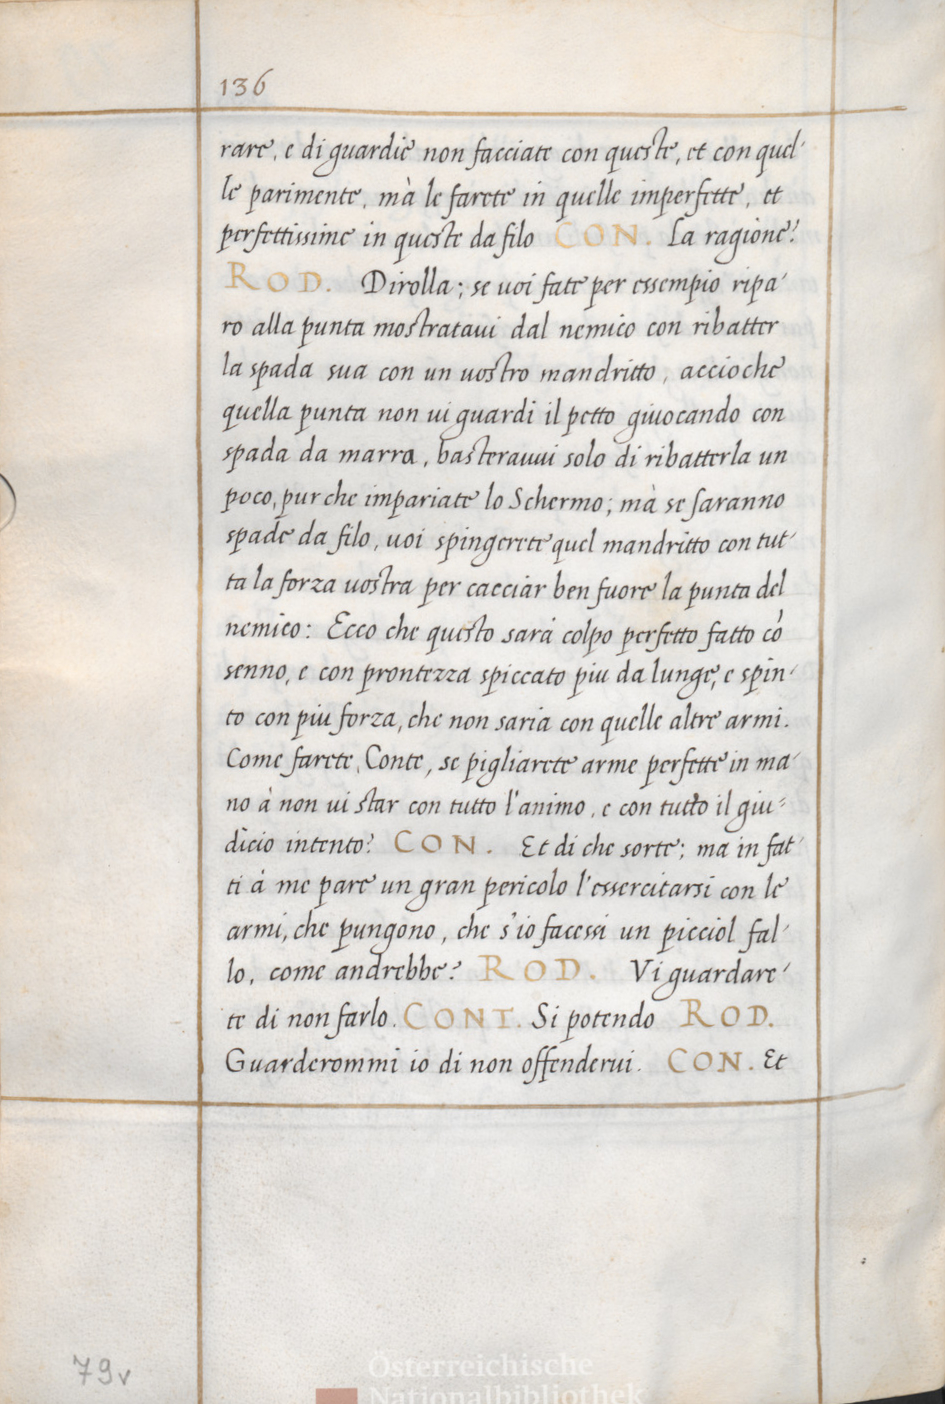 136
rare, e di guardie non facciate con queste, et con quel-
le parimente, mà le farete in quelle imperfette, et
perfettissime in queste da filo CON. La ragione?
ROD. Dirolla; se uoi fate per essempio ripa-
ro alla punta mostrataui dal nemico con ribatter
la spada sua con un uostro mandritto, accioche
quella punta non ui guardi il petto giuocando con
spada da marra, basterauui solo di ribatterla un
poco, pur che impariate lo Schermo; mà se saranno
spade da filo, uoi spingerete quel mandritto con tut-
ta la forza uostra per cacciar ben fuore la punta del
nemico: Ecco che questo sarà colpo perfetto fatto cõ
senno, e con prontezza spiccato piu da lunge, e spin-
to con piu forza, che non saria con quelle altre armi.
Come farete, Conte, se pigliarete arme perfette in ma-
no à non ui star con tutto l'animo, e con tutto il giu-
dicio intento? CON. Et di che sorte; ma in fat-
ti à me pare un gran pericolo l'essercitarsi con le
armi, che pungono, che s'io facessi un picciol fal-
lo, come andrebbe? ROD. Vi guardare-
te di non farlo. CONT. Si potendo ROD.
Guarderommi io di non offenderui. CON. Et
79v
Österreichische
Nationalbibliothek